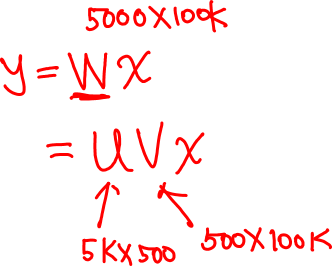 5000X100K
y = Wx
= UVx
5KX500 500X100K